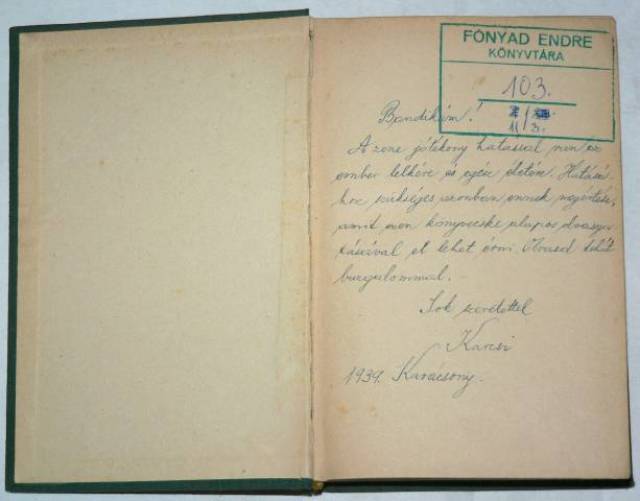 FÓNYAD ENDRE
KÖNYVTÁRA
103.
II/3.
Bandikám!
A zene jótékony hatással van az
ember lelkére és egész életére. Hatásá-
hoz szükséges azonban ennek megértése,
amit ezen könyvecske alapos olvasga-
tásával el lehet érni. Olvasd tehát
buzgalommal.
Sok szeretettel
Karcsi
1939. Karácsony.